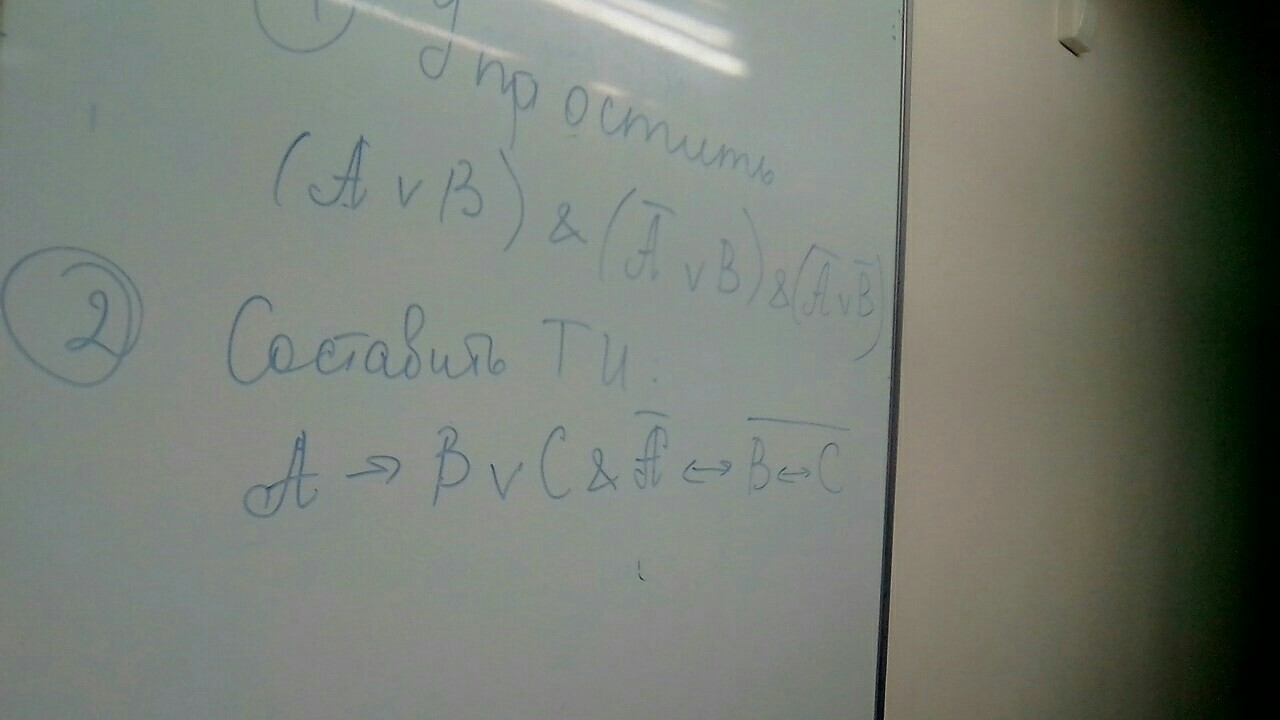 1 Упростить
(A v B) & (A̅ v B) & (A̅ v B̅)
2 Составить ТИ.
A → B v C & A̅ ↔ B̅ ↔̅ C̅